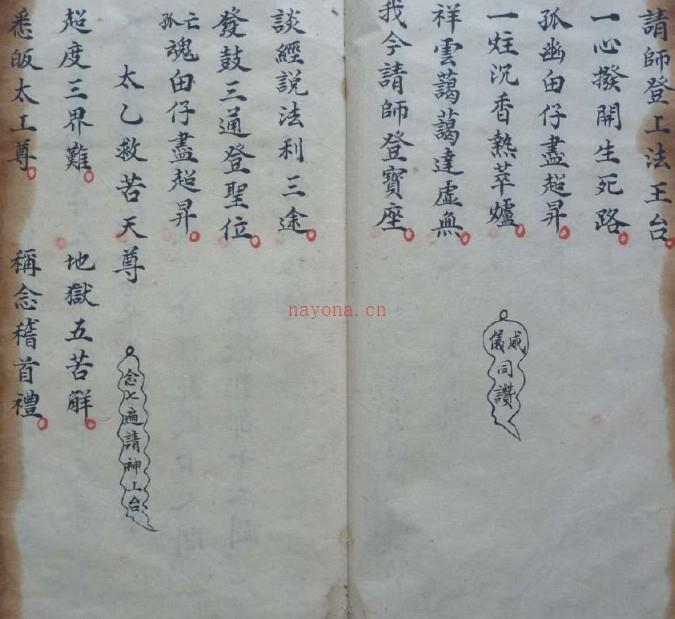 請師登工法王台
一心撥開生死路
孤幽由仔盡超昇
一炷沉香熱萃爐
祥雲藹藹達虛無
我今請師登寶座
威儀同讚
談經說法利三途
發鼓三通登聖位
孤亡魂由仔盡超昇
太乙救苦天尊
念七遍請神上台
超度三界難
地獄五苦解
悉皈太工尊
稱念稽首禮
nayona.cn